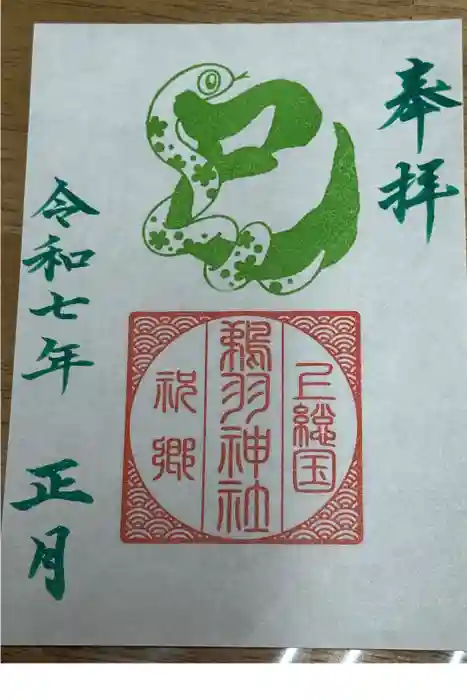 奉拝
巳
上総国
鵜羽神社
祝郷
令和七年 正月